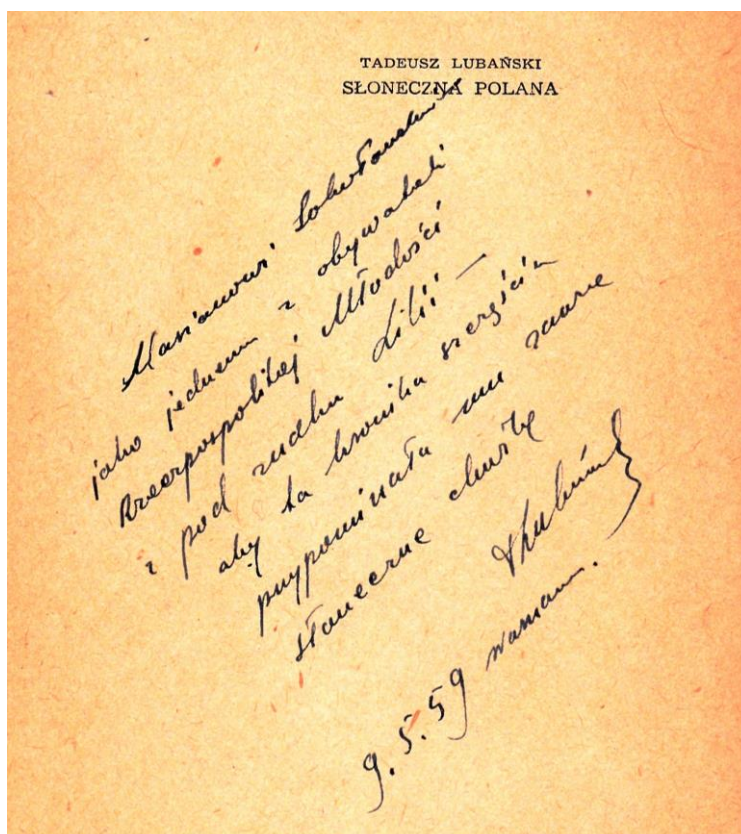 TADEUSZ LUBAŃSKI
SŁONECZNA POLANA
Marianowi
jako jednemu z obywateli
Rzeczpospolitej Młodości
z pod znaku Lilii —
aby ta kronika szczęścia
przypominała mu zawsze
słoneczne chwile
TLubański
9.5.59 Warszawa.